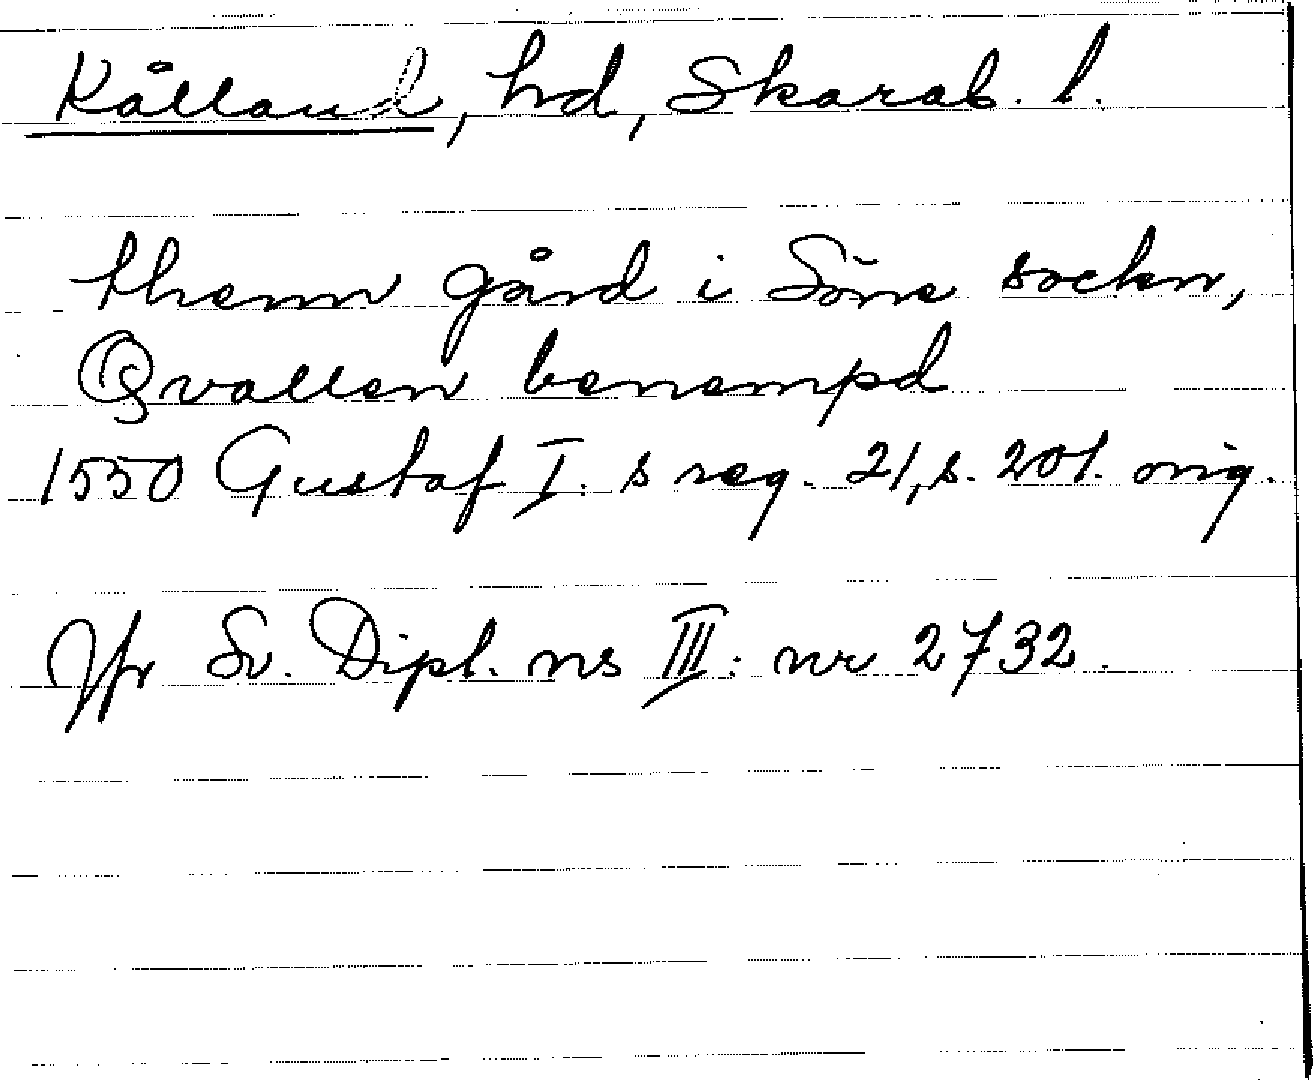 Kålland, hd, Skarab. l.
thenn gård i Söne sockn,
Qvallen benempd
1550 Gustaf I. s reg. 21, s. 201. orig.
Jfr Sv. Dipl. ns III: nr 2732.